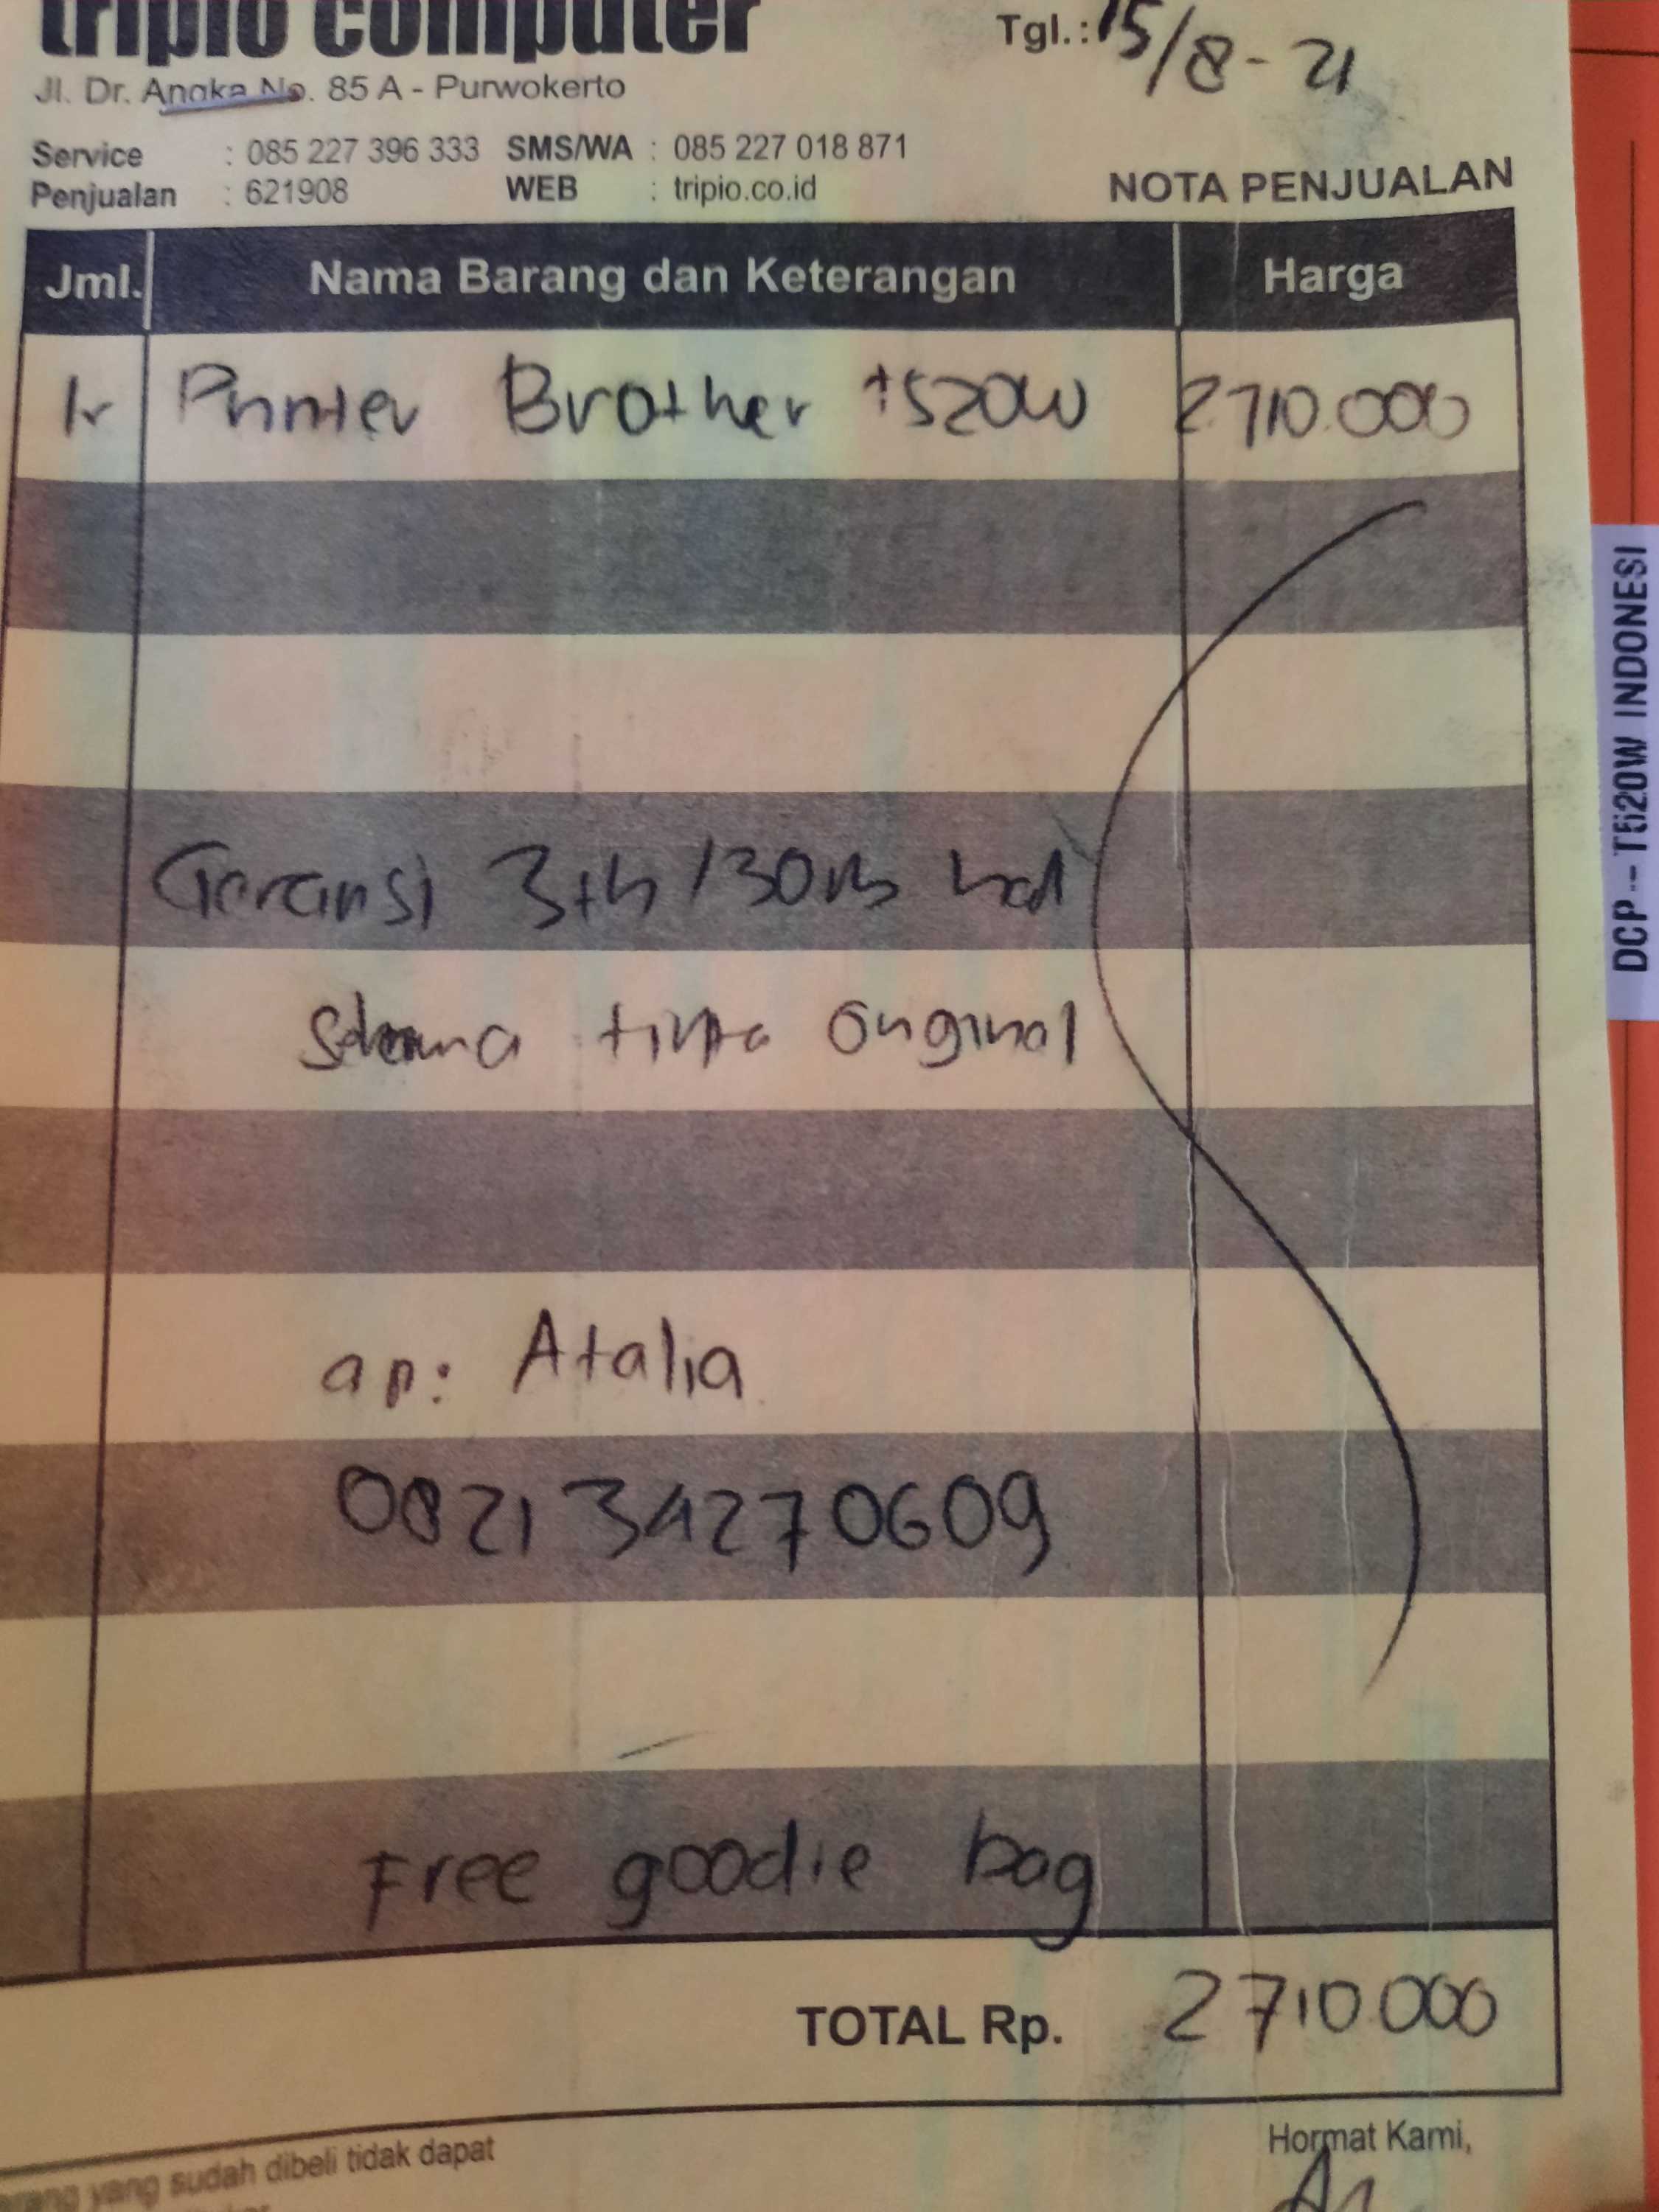 tripio computer
Tgl.: 15/8-21
Jl. Dr. Angka No. 85 A - Purwokerto
Service : 085 227 396 333 SMS/WA : 085 227 018 871
Penjualan : 621908 WEB : tripio.co.id
NOTA PENJUALAN
Jml. Nama Barang dan Keterangan Harga
1 Printer Brother t520W 2.710.000
Garansi 3th/30rb hal
Selama tinta Original
an: Atalia
082134270609
Free goodie bag
TOTAL Rp. 2710.000
Hormat Kami,
yang sudah dibeli tidak dapat
DCP-T520W INDONESI